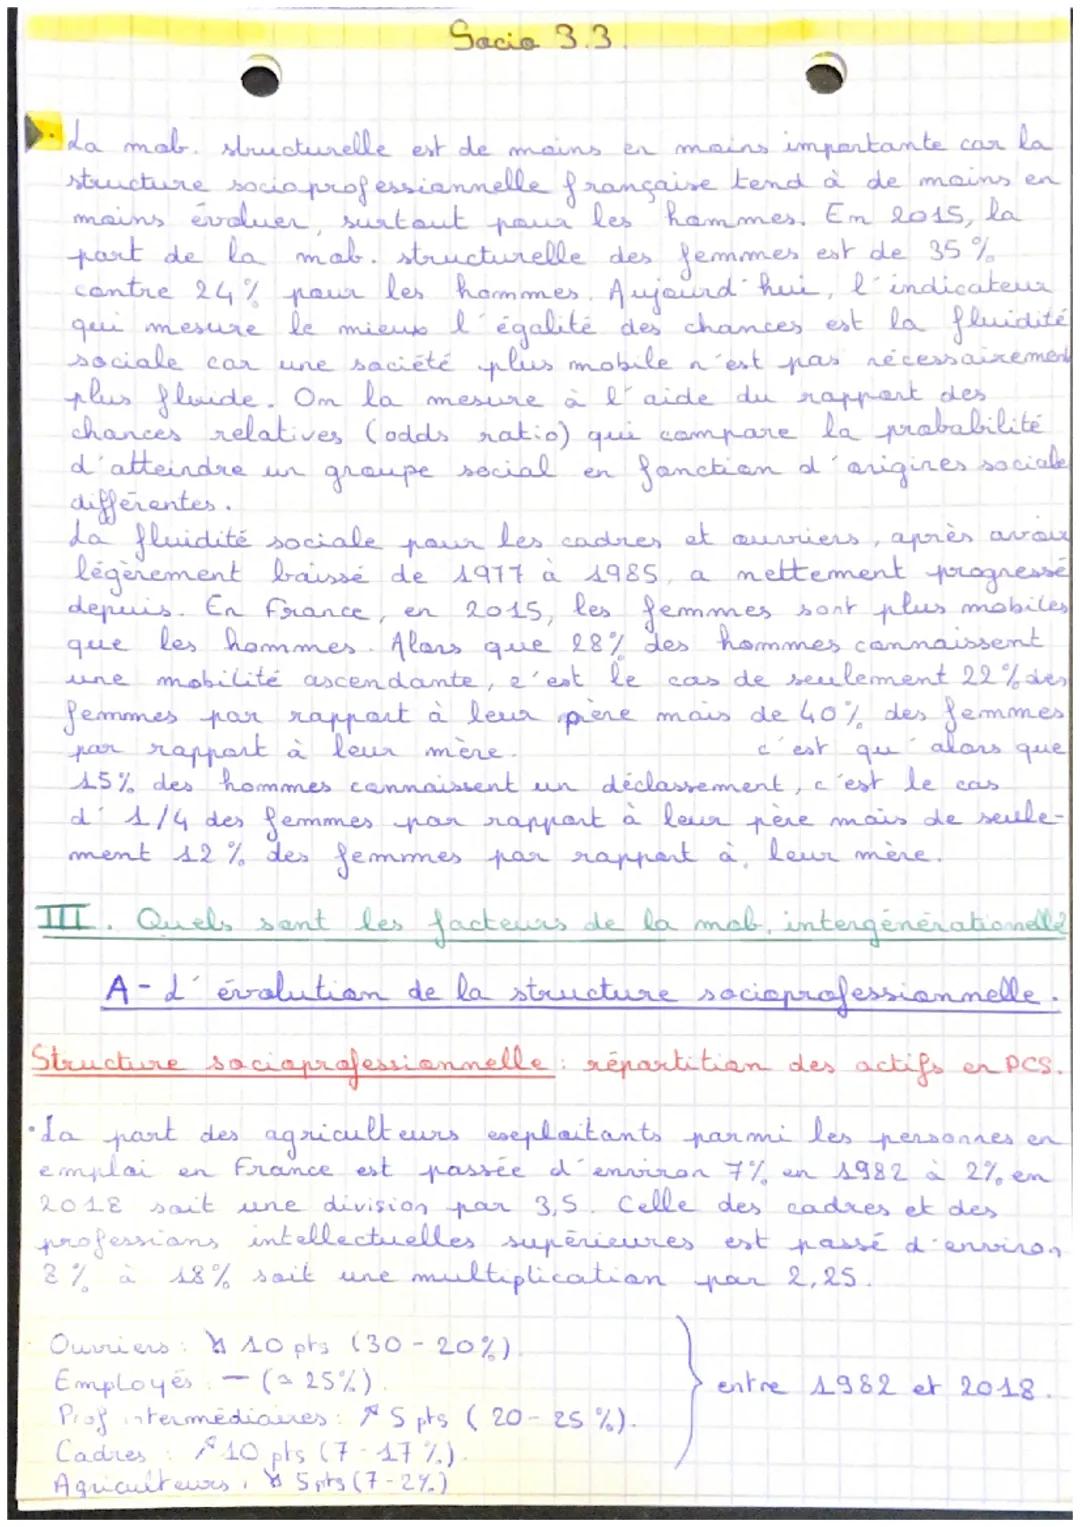 Socio 3.3.
La mob. structurelle est de moins en moins importante car la
structure socioprofessionnelle française tend à de moins en
moins évoluer, surtout pour les hommes. En 2015, la
part de la mob. structurelle des femmes est de 35 %
contre 24% pour les hommes. Aujourd'hui, l'indicateur
qui mesure le mieux l'égalité des chances est la fluidité
sociale car une société plus mobile n'est pas nécessairement
plus fluide. On la mesure à l'aide du rapport des
chances relatives (odds ratio) qui compare la probabilité
d'atteindre un groupe social en fonction d'origines sociale
différentes.
La fluidité sociale pour les cadres et ouvriers, après avoir
légèrement baissé de 1977 à 1985, a nettement progressé
depuis. En France, en 2015, les femmes sont plus mobiles
que les hommes. Alors que 28% des hommes connaissent
une mobilité ascendante, c'est le cas de seulement 22% des
femmes par rapport à leur père mais de 40% des femmes
par rapport à leur mère. c'est qu'alors que
15% des hommes connaissent un déclassement, c'est le cas
d'1/4 des femmes par rapport à leur père mais de seule-
ment 12 % des femmes par rapport à leur mère.
III. Quels sont les facteurs de la mob. intergénérationnelle?
A- L'évolution de la structure socioprofessionnelle.
Structure socioprofessionnelle : répartition des actifs en PCS.
•La part des agriculteurs exploitants parmi les personnes en
emploi en France est passée d'environ 7% en 1982 à 2% en
2018 soit une division par 3,5. Celle des cadres et des
professions intellectuelles supérieures est passé d'environ
8% à 18% soit une multiplication par 2,25.
Ouvriers : ↘ 10 pts (30-20%).
Employés : — (≃ 25%).
Prof intermédiaires : ↗ 5 pts (20-25%).
entre 1982 et 2018.
Cadres : ↗ 10 pts (7-17%).
Agriculteurs : ↘ 5 pts (7-2%)